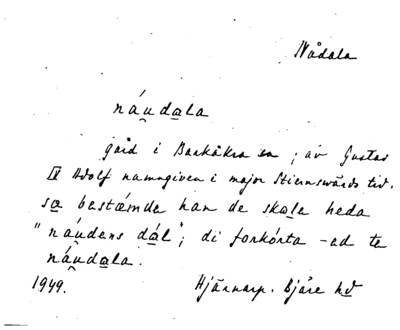 Nådala
náu̯dala
gård i Barkåkra sn ; av Gustav
IV Adolf namngiven i major Stiernswärds tid.
sa bestæmde han de skale heda
"náu̯dens dál"; di forkórta -ad te
náu̯dala.
1949. Hjärnarp. Bjäre hd